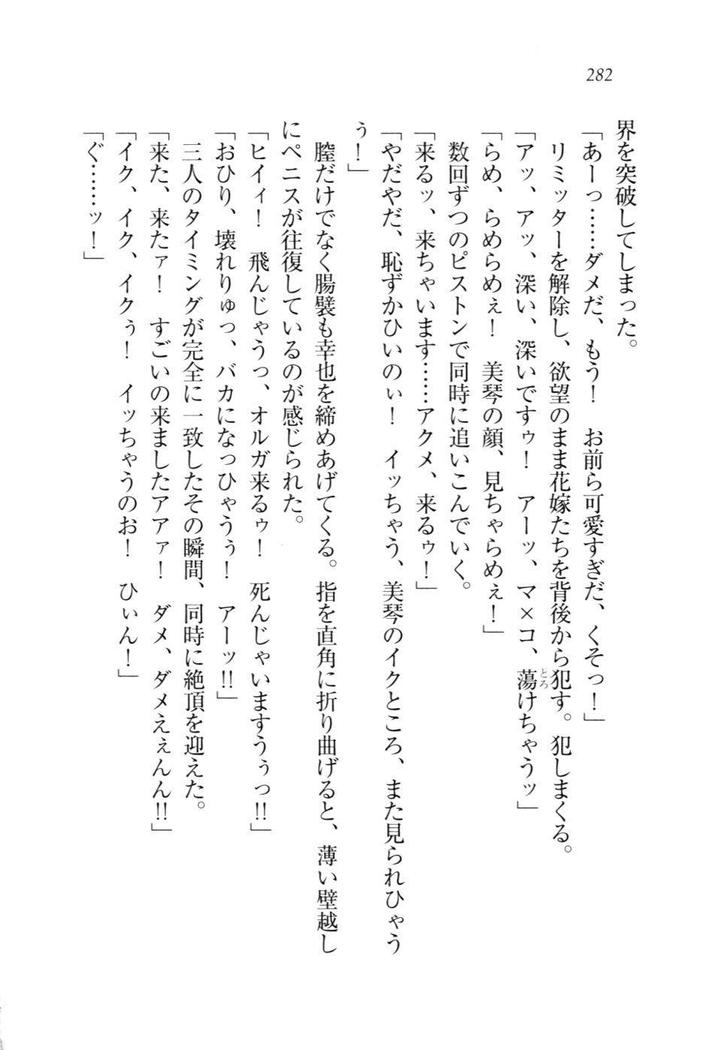 282
界を突破してしまった。
「あーっ……ダメだ、もう！　お前ら可愛すぎだ、くそっ！」
　リミッターを解除し、欲望のまま花嫁たちを背後から犯す。犯しまくる。
「アッ、アッ、深い、深いですゥ！　アーッ、マ×コ、蕩けちゃうッ」
とろ
「らめ、らめらめぇ！　美琴の顔、見ちゃらめぇ！」
　数回ずつのピストンで同時に追いこんでいく。
「来るッ、来ちゃいます……アクメ、来るゥ！」
「やだやだ、恥ずかひいのぃ！　イッちゃう、美琴のイクところ、また見られひゃう
ぅ！」
　膣だけでなく腸襞も幸也を締めあげてくる。指を直角に折り曲げると、薄い壁越し
にペニスが往復しているのが感じられた。
「ヒイィ！　飛んじゃうっ、オルガ来るゥ！　死んじゃいますうぅっ!!」
「おひり、壊れりゅっ、バカになっひゃうぅ！　アーッ!!」
　三人のタイミングが完全に一致したその瞬間、同時に絶頂を迎えた。
「来た、来たァ！　すごいの来ましたアアァ！　ダメ、ダメえぇんん!!」
「イク、イク、イクぅ！　イッちゃうのお！　ひぃん！」
「ぐ……ッ！」